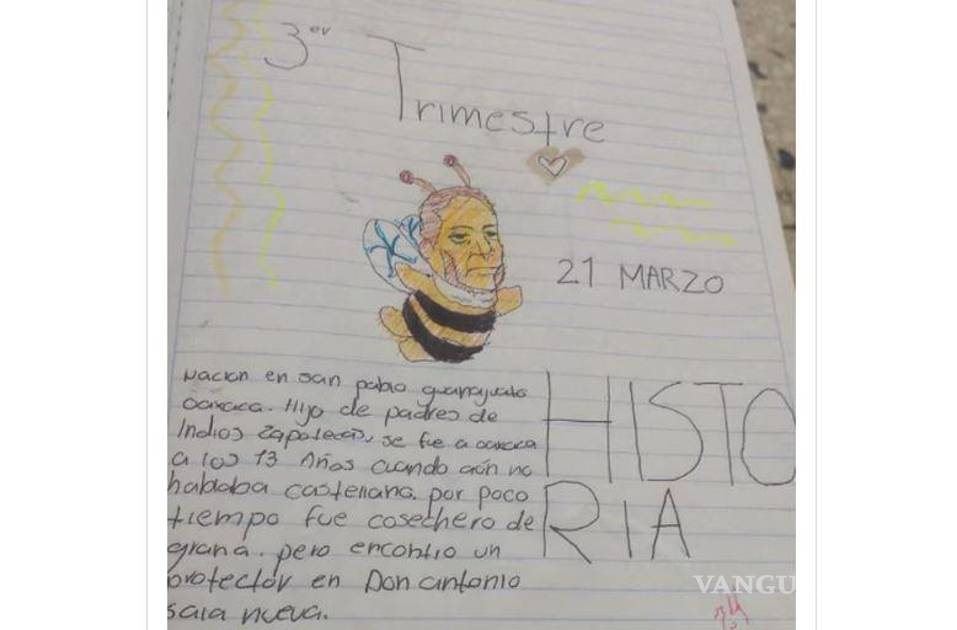 3er
Trimestre
21 MARZO
HISTO
RIA
nacion en san pablo guanajuato
oaxaca. Hijo de padres de
Indios zapotecas, se fue a oaxaca
a los 13 Años cuando aún no
hablaba castellano. por poco
tiempo fue cosechero de
grana. pero encontro un
protector en Don antonio
sala nueva.
VANGU